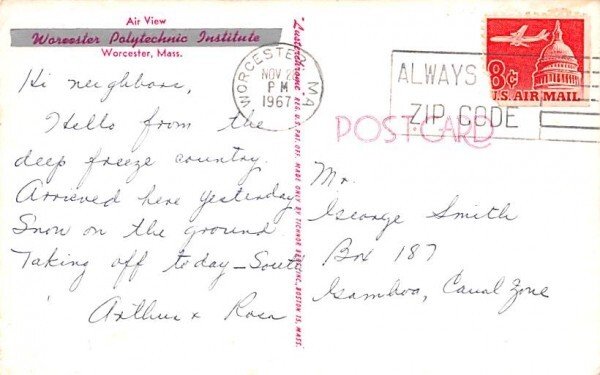 Air View
Worcester Polytechnic Institute
Worcester, Mass.
Hi neighbors,
Hello from the
deep freeze country.
Arrived here yesterday
Snow on the ground.
Taking off today — South
Arthur & Rosa
"Lusterchrome" REG. U.S. PAT. OFF. MADE ONLY BY TICHNOR BROS., INC., BOSTON 15, MASS.
WORCESTER, MA
NOV 2
PM
1967
ALWAYS
ZIP CODE
8¢
U.S. AIR MAIL
POST CARD
Mr.
George Smith
Box 187
Gamboa, Canal Zone